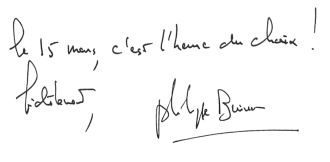 le 15 mars, c'est l'heure du choix !
Fidèlement,
Philippe